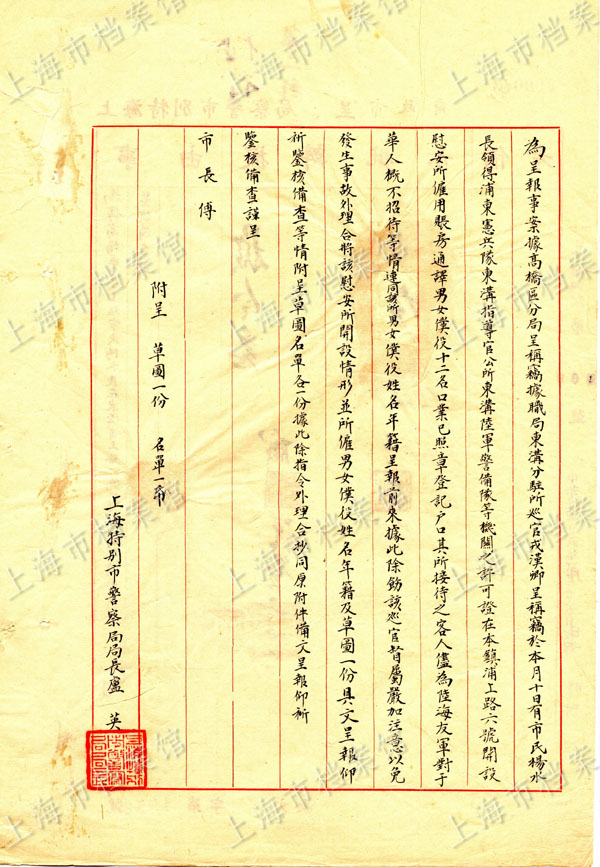 為呈報事案據高橋區分局呈稱竊據職局東溝分駐所巡官戎漢卿呈稱竊於本月十日有市民楊水
長領得浦東憲兵隊東溝指導官公所東溝陸軍警備隊等機關之許可證在本鎮浦上路六號開設
慰安所僱用賬房通譯男女僕役十二名口業已照章登記户口其所接待之客人儘為陸海友軍對于
華人概不招待等情連同該所男女僕役姓名年籍呈報前來據此除飭該巡官督屬嚴加注意以免
發生事故外理合將該慰安所開設情形並所僱男女僕役姓名年籍及草圖一份具文呈報仰
祈鑒核備查等情附呈草圖名單各一份據此除指令外理合抄同原附件備文呈報仰祈
鑒核備查謹呈
市長傅
附呈 草圖一份 名單一帋
上海特別市警察局局長盧 英
上海市档案馆